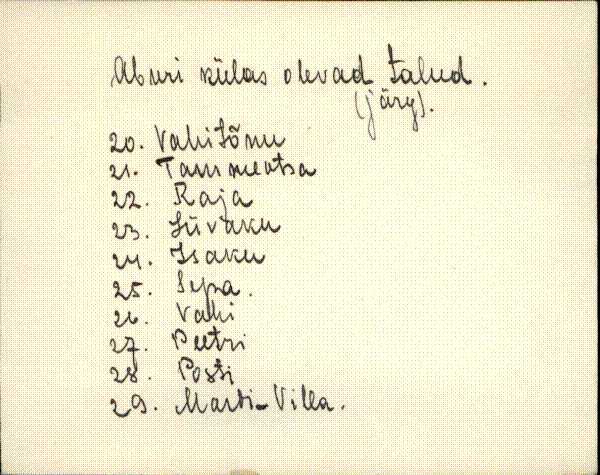 Aburi külas olevad talud.
(järg).
20. Vahitõnu
21. Tammeotsa
22. Raja
23. Süvaku
24. Isaku
25. Sepa.
26. Vahi
27. Peetri
28. Posti
29. Marti-Villa.